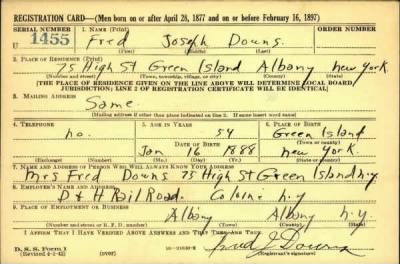 REGISTRATION CARD—(Men born on or after April 28, 1877 and on or before February 16, 1897)
SERIAL NUMBER 1. NAME (Print) ORDER NUMBER
U 1455 Fred Joseph Downs.
(First) (Middle) (Last)
2. PLACE OF RESIDENCE (Print)
75 High St Green Island Albany New York.
(Number and street) (Town, township, village, or city) (County) (State)
[THE PLACE OF RESIDENCE GIVEN ON THE LINE ABOVE WILL DETERMINE LOCAL BOARD
JURISDICTION; LINE 2 OF REGISTRATION CERTIFICATE WILL BE IDENTICAL]
3. MAILING ADDRESS
Same.
[Mailing address if other than place indicated on line 2. If same insert word same]
4. TELEPHONE 5. AGE IN YEARS 6. PLACE OF BIRTH
no. 54 Green Island
DATE OF BIRTH (Town or county)
Jan 16 1888 New York.
(Exchange) (Number) (Mo.) (Day) (Yr.) (State or country)
7. NAME AND ADDRESS OF PERSON WHO WILL ALWAYS KNOW YOUR ADDRESS
Mrs Fred Downs 75 High St Green Island N.Y
8. EMPLOYER'S NAME AND ADDRESS
D & H Rail Road. Colonie N.Y
9. PLACE OF EMPLOYMENT OR BUSINESS
Albany Albany N.Y.
(Number and street or R. F. D. number) (Town) (County) (State)
I AFFIRM THAT I HAVE VERIFIED ABOVE ANSWERS AND THAT THEY ARE TRUE.
D. S. S. Form 1
(Revised 4-1-42) (over)
Fred J Downs
(Registrant's signature)